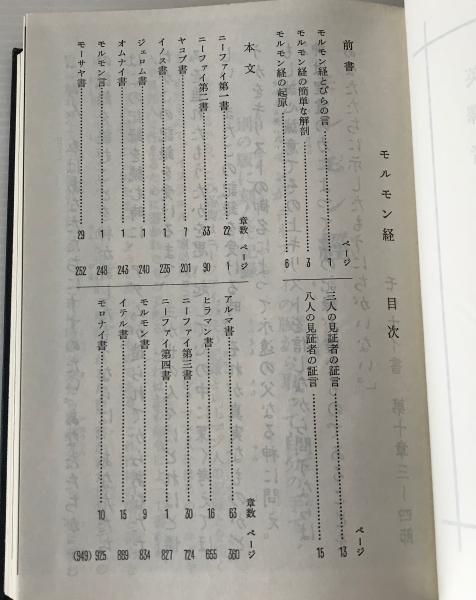 モルモン経　目次
前書
ページ
モルモン経とびらの言 1
モルモン経の簡単な解剖 3
モルモン経の起原 6
ページ
三人の見証者の証言 13
八人の見証者の証言 15
本文
章数 ページ
ニーファイ第一書 22 1
ニーファイ第二書 33 90
ヤコブ書 7 201
イノス書 1 235
ジェロム書 1 240
オムナイ書 1 243
モルモン言 1 248
モーサヤ書 29 252
章数 ページ
アルマ書 63 360
ヒラマン書 16 655
ニーファイ第三書 30 724
ニーファイ第四書 1 827
モルモン書 9 834
イテル書 15 869
モロナイ書 10 925
(949)